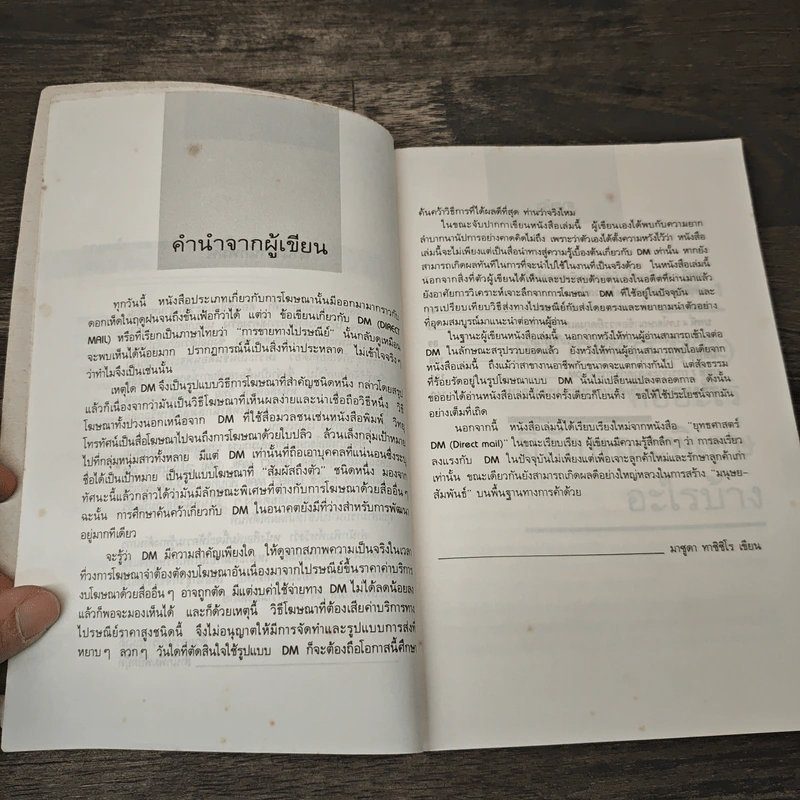 คำนำจากผู้เขียน
ทุกวันนี้ หนังสือประเภทเกี่ยวกับการโฆษณานั้นมีออกมามากราวกับ
ดอกเห็ดในฤดูฝนจนถึงขั้นเฟ้อก็ว่าได้ แต่ว่า ข้อเขียนเกี่ยวกับ DM (DIRECT
MAIL) หรือที่เรียกเป็นภาษาไทยว่า "การขายทางไปรษณีย์" นั้นกลับดูเหมือน
จะพบเห็นได้น้อยมาก ปรากฏการณ์นี้เป็นสิ่งที่น่าประหลาด ไม่เข้าใจจริงๆ
ว่าทำไมจึงเป็นเช่นนั้น
เหตุใด DM จึงเป็นรูปแบบวิธีการโฆษณาที่สำคัญชนิดหนึ่ง กล่าวโดยสรุป
แล้วก็เนื่องจากว่ามันเป็นวิธีโฆษณาที่เห็นผลง่ายและน่าเชื่อถือวิธีหนึ่ง วิธี
โฆษณาทั้งปวงนอกเหนือจาก DM ที่ใช้สื่อมวลชนเช่นหนังสือพิมพ์ วิทยุ
โทรทัศน์เป็นสื่อโฆษณาไปจนถึงการโฆษณาด้วยใบปลิว ล้วนเล็งกลุ่มเป้าหมาย
ไปที่กลุ่มหนุ่มสาวทั้งหลาย มีแต่ DM เท่านั้นที่ถือเอาบุคคลที่แน่นอนซึ่งระบุ
ชื่อได้เป็นเป้าหมาย เป็นรูปแบบโฆษณาที่ "สัมผัสถึงตัว" ชนิดหนึ่ง มองจาก
ทัศนะนี้แล้วกล่าวได้ว่ามันมีลักษณะพิเศษที่ต่างกับการโฆษณาด้วยสื่ออื่นๆ
ฉะนั้น การศึกษาค้นคว้าเกี่ยวกับ DM ในอนาคตยังมีที่ว่างสำหรับการพัฒนา
อยู่มากทีเดียว
จะรู้ว่า DM มีความสำคัญเพียงใด ให้ดูจากสภาพความเป็นจริงในเวลา
ที่วงการโฆษณาจำต้องตัดงบโฆษณาอันเนื่องมาจากไปรษณีย์ขึ้นราคาค่าบริการ
งบโฆษณาด้วยสื่ออื่นๆ อาจถูกตัด มีแต่งบค่าใช้จ่ายทาง DM ไม่ได้ลดน้อยลง
แล้วก็พอจะมองเห็นได้ และก็ด้วยเหตุนี้ วิธีโฆษณาที่ต้องเสียค่าบริการทาง
ไปรษณีย์ราคาสูงชนิดนี้ จึงไม่อนุญาตให้มีการจัดทำและรูปแบบการส่งที่
หยาบๆ ลวกๆ วันใดที่ตัดสินใจใช้รูปแบบ DM ก็จะต้องถือโอกาสนี้ศึกษา
ค้นคว้าวิธีการที่ได้ผลดีที่สุด ท่านว่าจริงไหม
ในขณะจับปากกาเขียนหนังสือเล่มนี้ ผู้เขียนเองได้พบกับความยาก
ลำบากนานัปการอย่างคาดคิดไม่ถึง เพราะว่าตัวเองได้ตั้งความหวังไว้ว่า หนังสือ
เล่มนี้จะไม่เพียงแต่เป็นสื่อนำทางสู่ความรู้เบื้องต้นเกี่ยวกับ DM เท่านั้น หากยัง
สามารถเกิดผลทันทีในการที่จะนำไปใช้ในงานที่เป็นจริงด้วย ในหนังสือเล่มนี้
นอกจากสิ่งที่ตัวผู้เขียนได้เห็นและประสบด้วยตนเองในอดีตที่ผ่านมาแล้ว
ยังอาศัยการวิเคราะห์เจาะลึกจากการโฆษณา DM ที่ใช้อยู่ในปัจจุบัน และ
การเปรียบเทียบวิธีส่งทางไปรษณีย์กับส่งโดยตรงและพยายามนำตัวอย่าง
ที่อุดมสมบูรณ์มาแนะนำต่อท่านผู้อ่าน
ในฐานะผู้เขียนหนังสือเล่มนี้ นอกจากหวังให้ท่านผู้อ่านสามารถเข้าใจต่อ
DM ในลักษณะสรุปรวบยอดแล้ว ยังหวังให้ท่านผู้อ่านสามารถพบไอเดียจาก
หนังสือเล่มนี้ ถึงแม้ว่าสาขางานอาชีพกับขนาดจะแตกต่างกันไป แต่สัจธรรม
ที่ร้อยรัดอยู่ในรูปโฆษณาแบบ DM นั้นไม่เปลี่ยนแปลงตลอดกาล ดังนั้น
ขออย่าได้อ่านหนังสือเล่มนี้เพียงครั้งเดียวก็โยนทิ้ง ขอให้ใช้ประโยชน์จากมัน
อย่างเต็มที่เถิด
นอกจากนี้ หนังสือเล่มนี้ได้เรียบเรียงใหม่จากหนังสือ "ยุทธศาสตร์
DM (Direct mail)" ในขณะเรียบเรียง ผู้เขียนมีความรู้สึกลึกๆ ว่า การลงเรี่ยว
ลงแรงกับ DM ในปัจจุบันไม่เพียงแต่เพื่อเจาะลูกค้าใหม่และรักษาลูกค้าเก่า
เท่านั้น ขณะเดียวกันยังสามารถเกิดผลอย่างใหญ่หลวงในการสร้าง "มนุษย-
สัมพันธ์" บนพื้นฐานทางการค้าด้วย
มาซูดา ทาชิชิโร เขียน